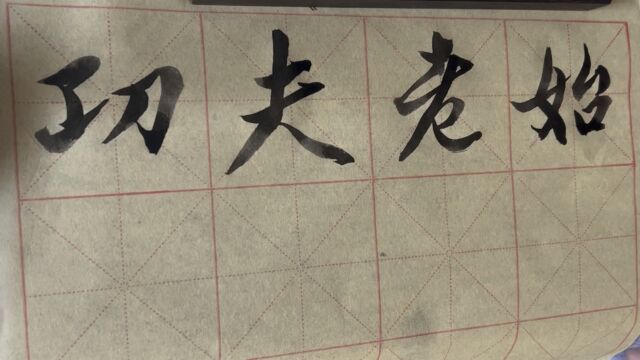 功夫老始